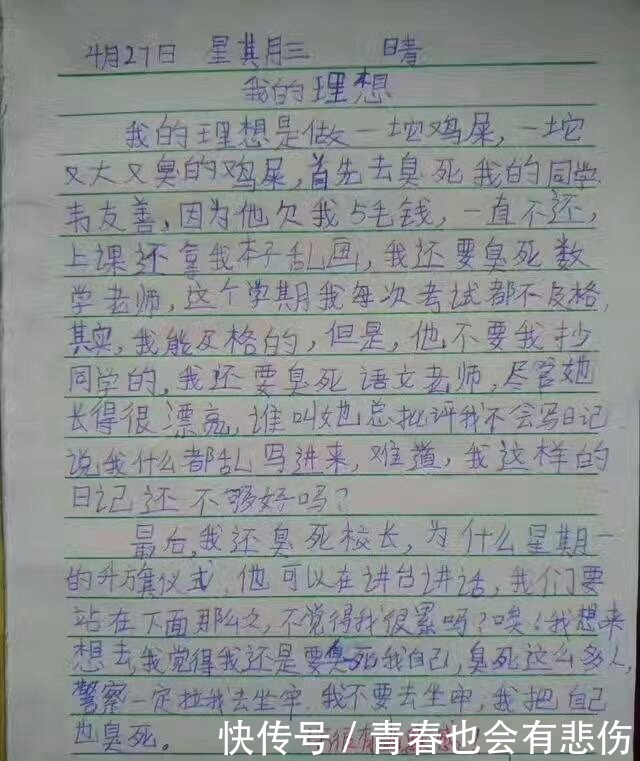 4月27日 星其月三 晴
我的理想
我的理想是做一坨鸡屎,一坨
又大又臭的鸡屎,首先去臭死我的同学
韦友善,因为他欠我5毛钱,一直不还,
上课还拿我本子乱画,我还要臭死数
学老师,这个学期我每次考试都不及格,
其实,我能及格的,但是,他不要我抄
同学的,我还要臭死语文老师,尽管她
长得很漂亮,谁叫她总批评我不会写日记
说我什么都乱写进来,难道,我这样的
日记还不够好吗?
最后,我还臭死校长,为什么星期一
的升旗仪式,他可以在讲台讲话,我们要
站在下面那么久,不觉得我很累吗?唉!我想来
想去,我觉得我还是要臭死我自己,臭死这么多人,
警察一定拉我去坐牢,我不要去坐牢,我把自己
也臭死。
快传号/青春也会有悲伤